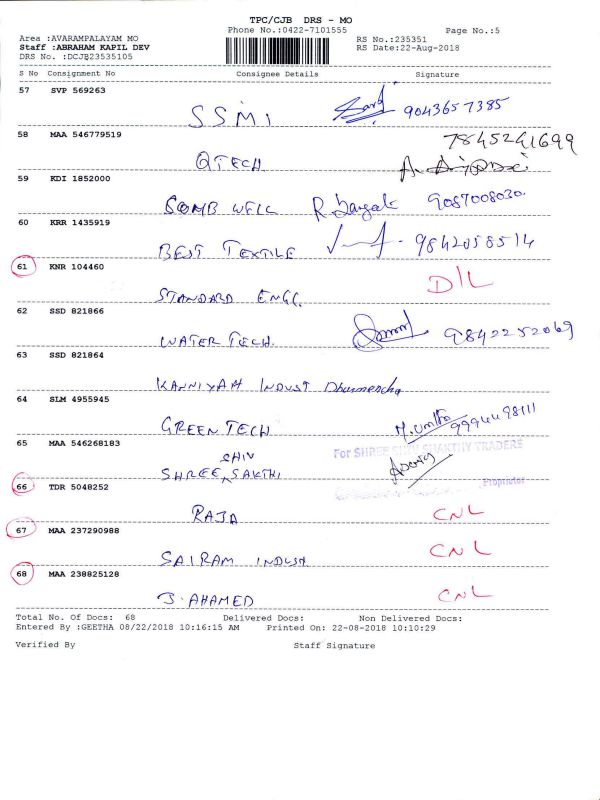 TPC/CJB DRS - MO
Phone No.:0422-7101555 Page No.:5
Area :AVARAMPALAYAM MO RS No.:235351
Staff :ABRAHAM KAPIL DEV RS Date:22-Aug-2018
DRS No. :DCJB23535105
S No Consignment No Consignee Details Signature
57 SVP 569263
SSMI 9043657385
58 MAA 546779519 7845241699
QTECH
59 KDI 1852000
COMB WELL 9087008030
60 KRR 1435919
BEST TEXTILE 9842058514
61 KNR 104460 D/L
STANDARD ENGG.
62 SSD 821866
WATER TECH. 9842252069
63 SSD 821864
KANNIYAH INDUST
64 SLM 4955945
GREEN TECH 9994498111
65 MAA 546268183 For SHREE SHIV SHAKTHY TRADERS
SHREE SHIV SAKTHI
66 TDR 5048252 Proprietor
RAJA CNL
67 MAA 237290988
SAIRAM INDUST CNL
68 MAA 238825128
J. AHAMED CNL
Total No. Of Docs: 68 Delivered Docs: Non Delivered Docs:
Entered By :GEETHA 08/22/2018 10:16:15 AM Printed On: 22-08-2018 10:10:29
Verified By Staff Signature